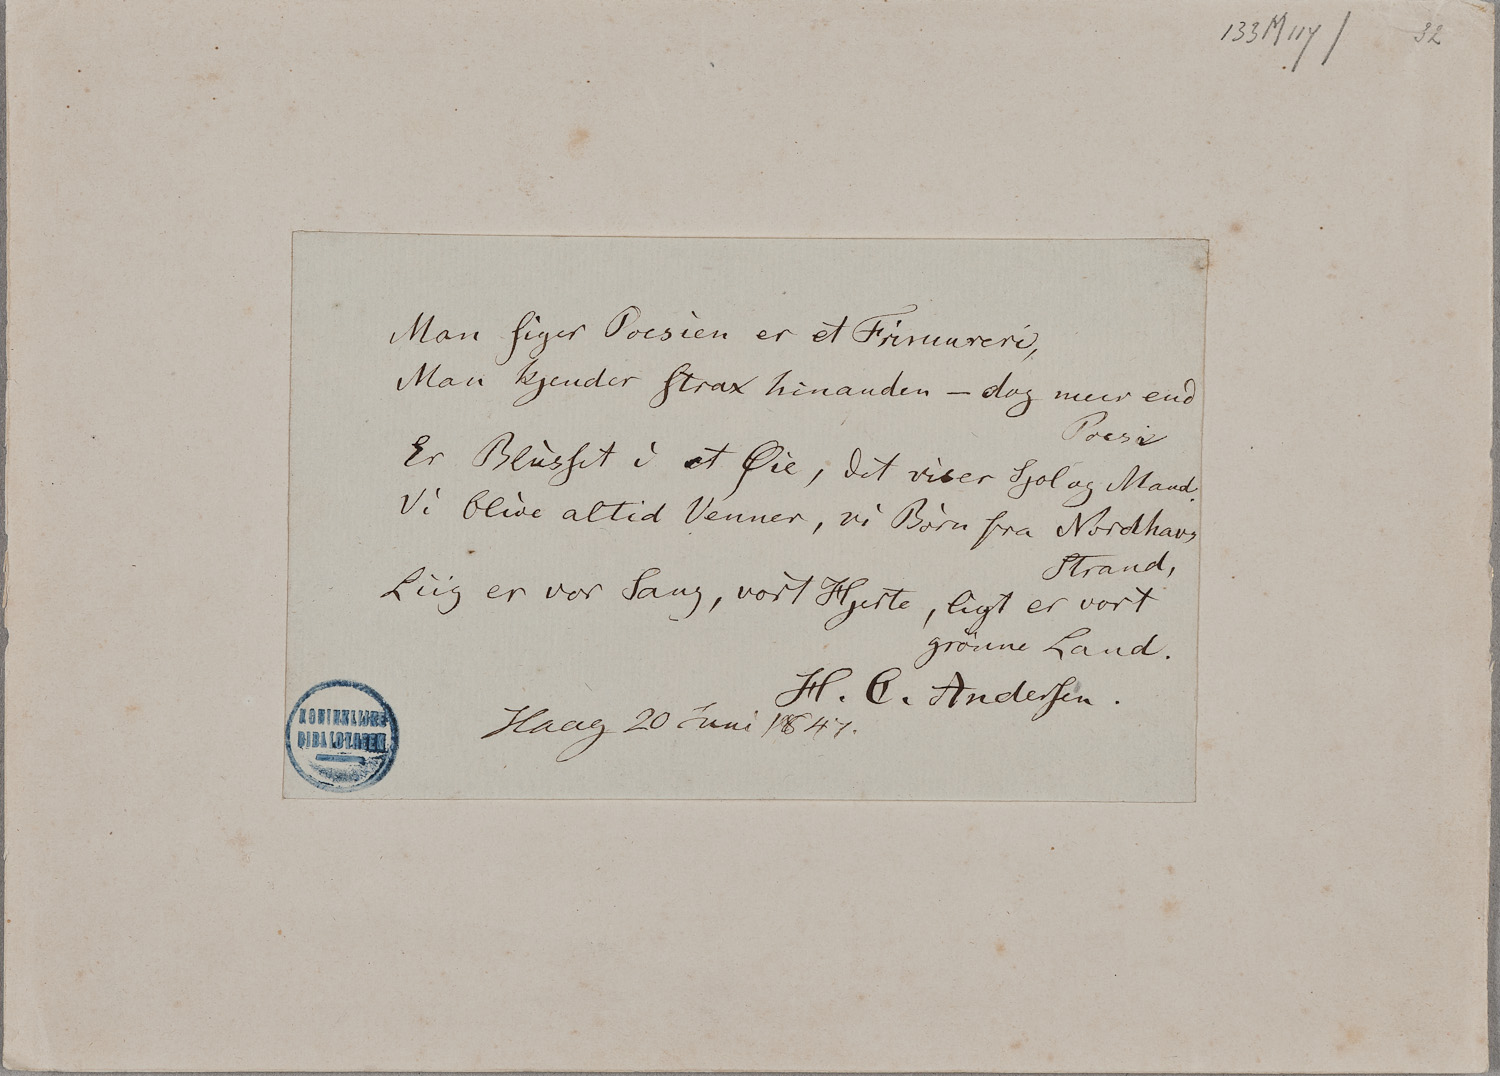 133 M 117 / 32
Man siger Poesien er et Frimureri,
Man kjender strax hinanden – dog meer end
Poesi
Er Blùsset i et Øie, det viser Sjøl og Mand.
Vi blive altid Venner, vi Børn fra Nordhavs
Strand,
Liig er vor Sang, vort Hjerte, ligt er vort
grønne Land.
H. C. Andersen.
Haag 20 Juni 1847.
KONINKLIJKE
BIBLIOTHEEK